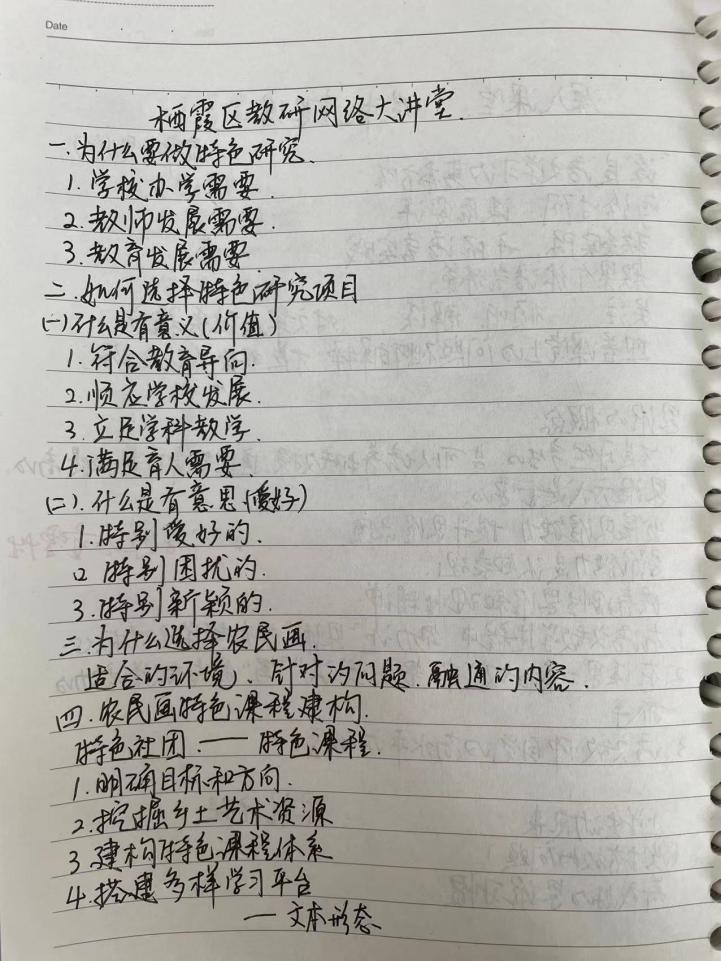 Date
栖霞区教研网络大讲堂.
一.为什么要做特色研究.
1.学校办学需要.
2.教师发展需要.
3.教育发展需要.
二.如何选择特色研究项目
(一)什么是有意义(价值)
1.符合教育导向.
2.顺应学校发展.
3.立足学科教学.
4.满足育人需要.
(二).什么是有意思(爱好)
1.特别爱好的.
2 特别困扰的.
3.特别新颖的.
三.为什么选择农民画.
适合的环境、针对的问题.融通的内容.
四.农民画特色课程建构.
特色社团.——特色课程.
1.明确目标和方向.
2.挖掘乡土艺术资源
3.建构特色课程体系
4.搭建多样学习平台
—文本形态